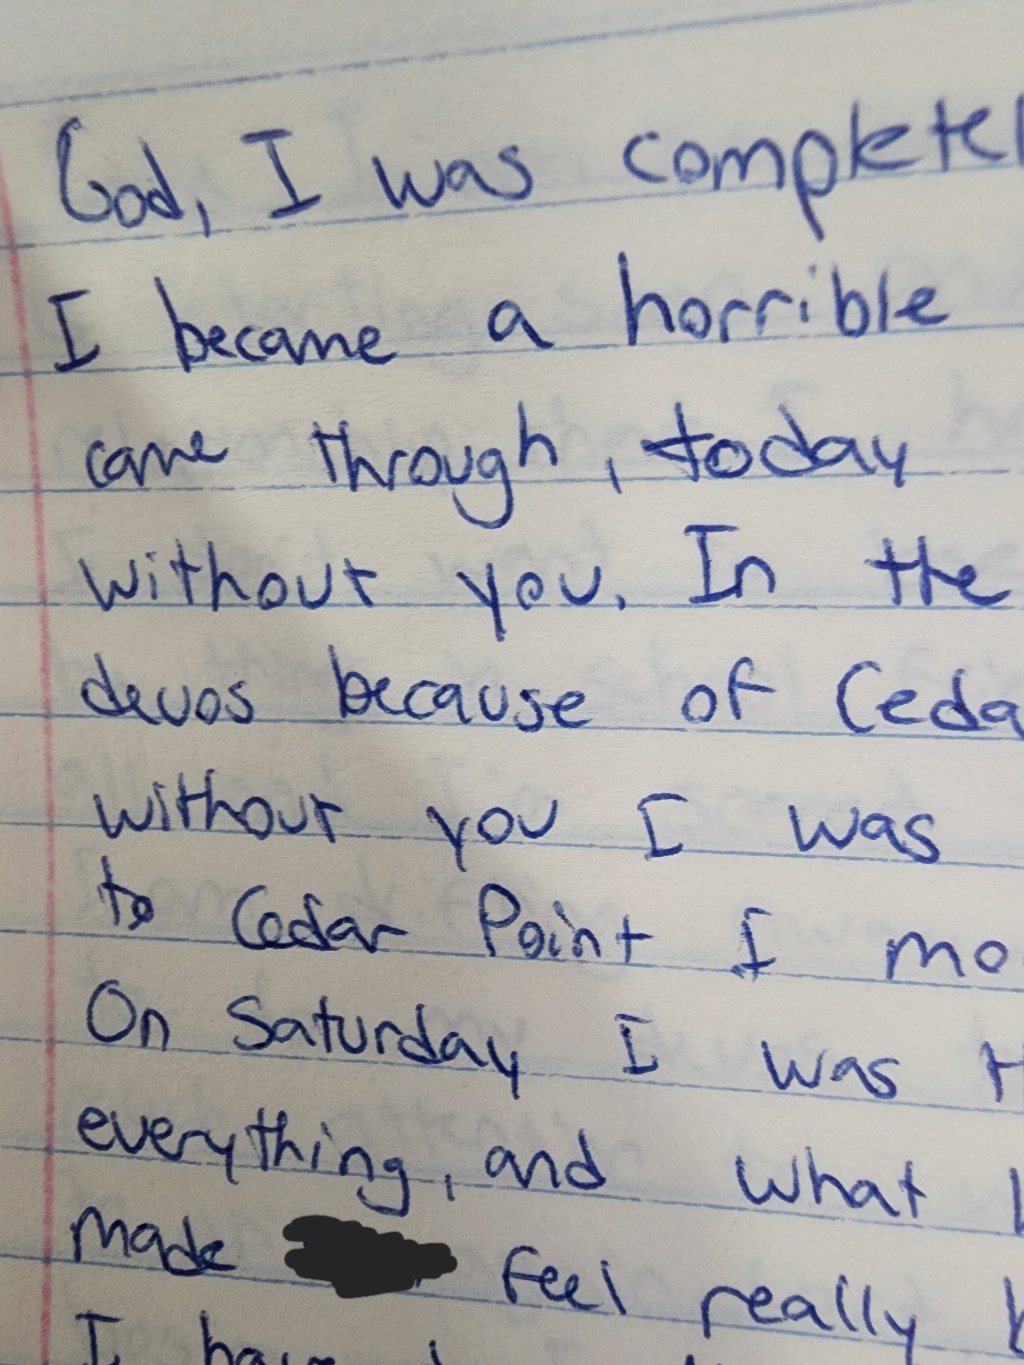 God, I was completel
I became a horrible
came through, today
without you. In the
devos because of Ceda
without you I was
to Cedar Point I mo
On Saturday I was
everything, and what
made feel really
I